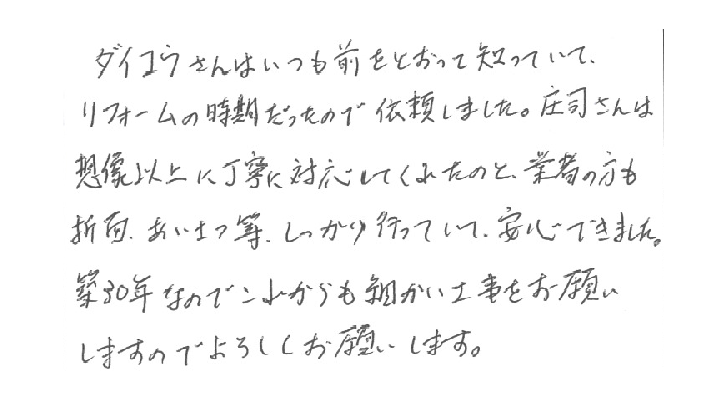 ダイコウさんはいつも前をとおって知っていて、
リフォームの時期だったので依頼しました。庄司さんは
想像以上に丁寧に対応してくれたのと、業者の方も
折面、あいさつ等、しっかり行っていて、安心できました。
築30年なのでこれからも細かい工事をお願い
しますのでよろしくお願いします。